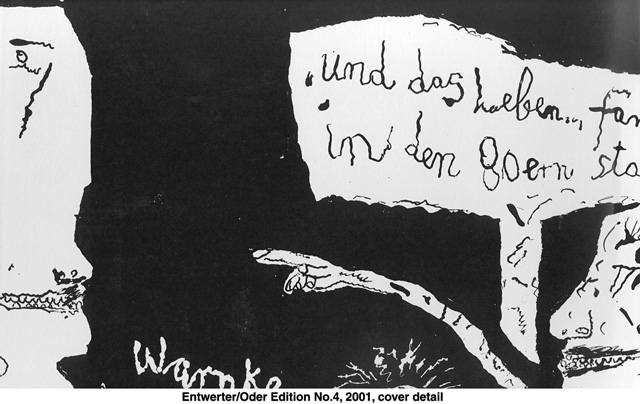 und das leben...
in den sta
Warnke
Entwerter/Oder Edition No.4, 2001, cover detail